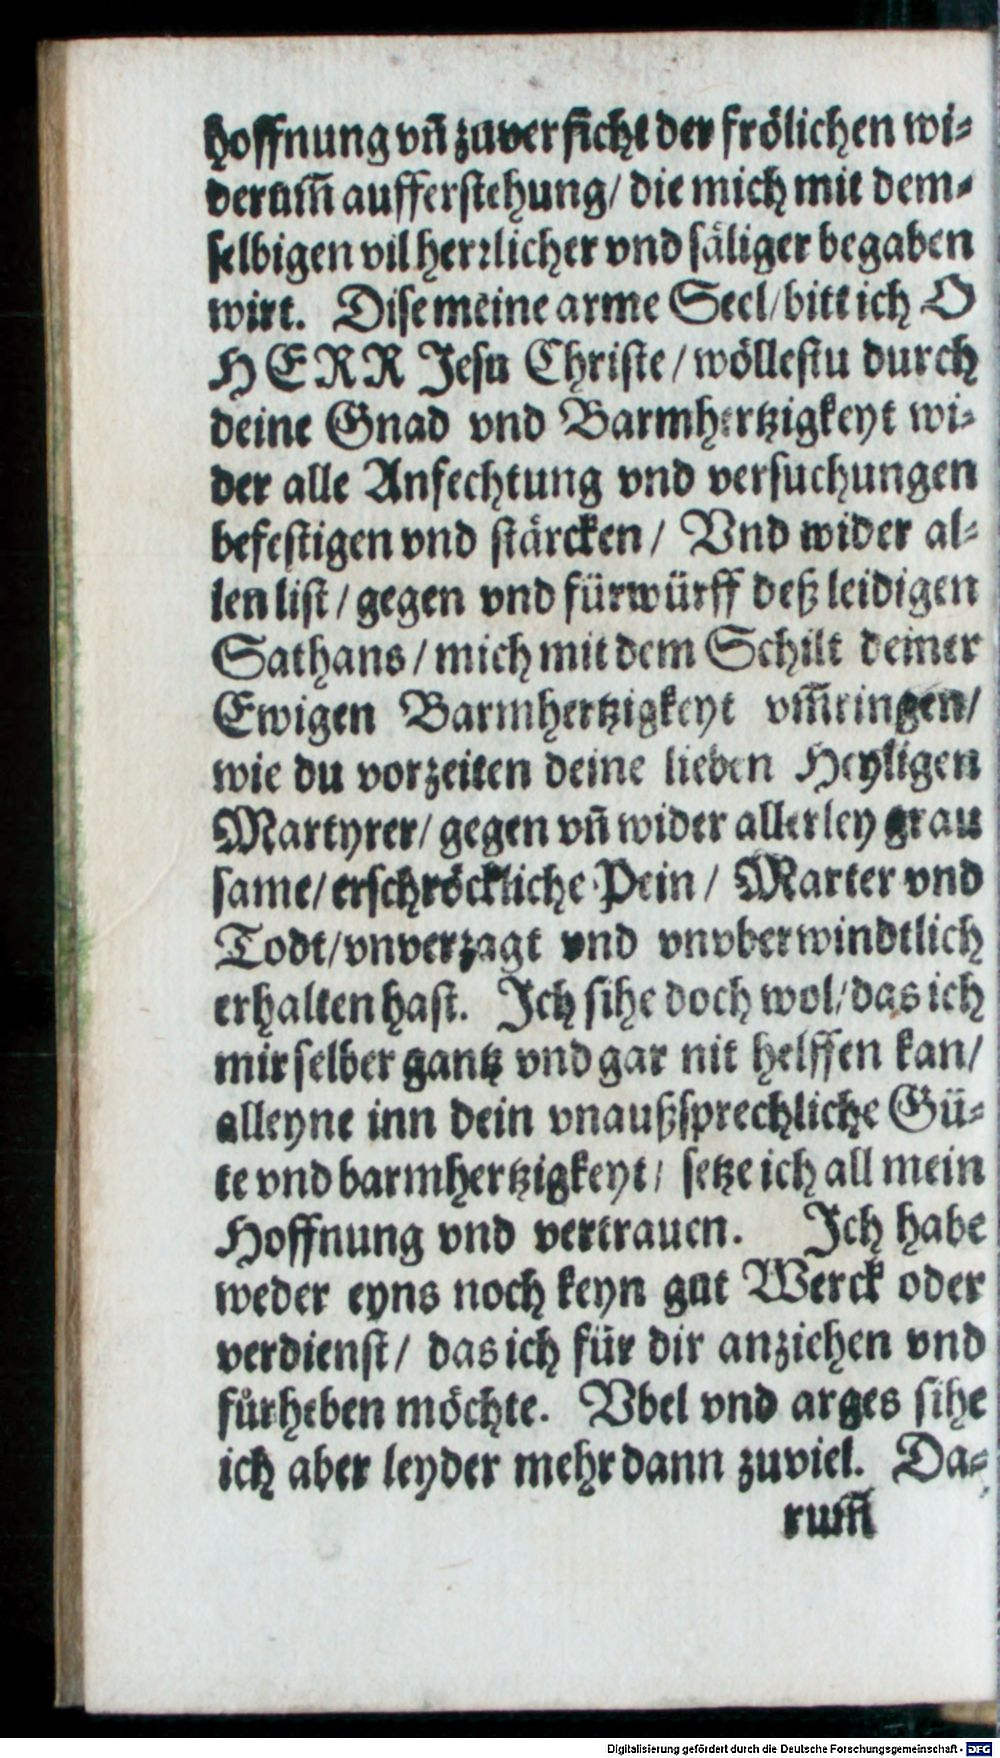 hoffnung vñ zuversicht der frölichen wi-
derum̃ aufferstehung/ die mich mit dem-
selbigen vil herrlicher vnd säliger begaben
wirt. Dise meine arme Seel/ bitt ich O
HERR Jesu Christe/ wöllestu durch
deine Gnad vnd Barmhertzigkeyt wi-
der alle Anfechtung vnd versuchungen
befestigen vnd stärcken/ Vnd wider al-
len list/ gegen vnd fürwürff deß leidigen
Sathans/ mich mit dem Schilt deiner
Ewigen Barmhertzigkeyt vm̃ringen/
wie du vorzeiten deine lieben Heyligen
Martyrer/ gegen vñ wider allerley grau
same/ erschröckliche Pein/ Marter vnd
Todt/ vnverzagt vnd vnvberwindtlich
erhalten hast. Ich sihe doch wol/ das ich
mir selber gantz vnd gar nit helffen kan/
alleyne inn dein vnaußsprechliche Gü-
te vnd barmhertzigkeyt/ setze ich all mein
Hoffnung vnd vertrauen. Ich habe
weder eyns noch keyn gut Werck oder
verdienst/ das ich für dir anziehen vnd
fůrheben möchte. Vbel vnd arges sihe
ich aber leyder mehr dann zuviel. Da-
rum̃
Digitalisierung gefördert durch die Deutsche Forschungsgemeinschaft - DFG